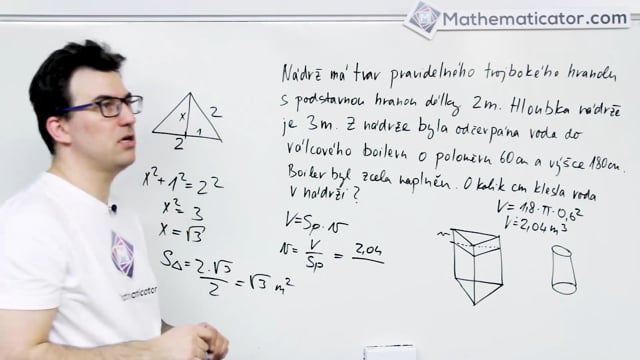 Mathematicator.com
Nádrž má tvar pravidelného trojbokého hranolu
s podstavnou hranou délky 2m. Hloubka nádrže
je 3m. Z nádrže byla odčerpána voda do
válcového boileru o poloměru 60cm a výšce 180cm.
Boiler byl zcela naplněn. O kolik cm klesla voda
v nádrži?
V = 1,8 · π · 0,6²
V = 2,04 m³
x
2
1
2
x² + 1² = 2²
x² = 3
x = √3
S△ = 2·√3 / 2 = √3 m²
V = Sp · v
v = V / Sp = 2,04
Mathematicator